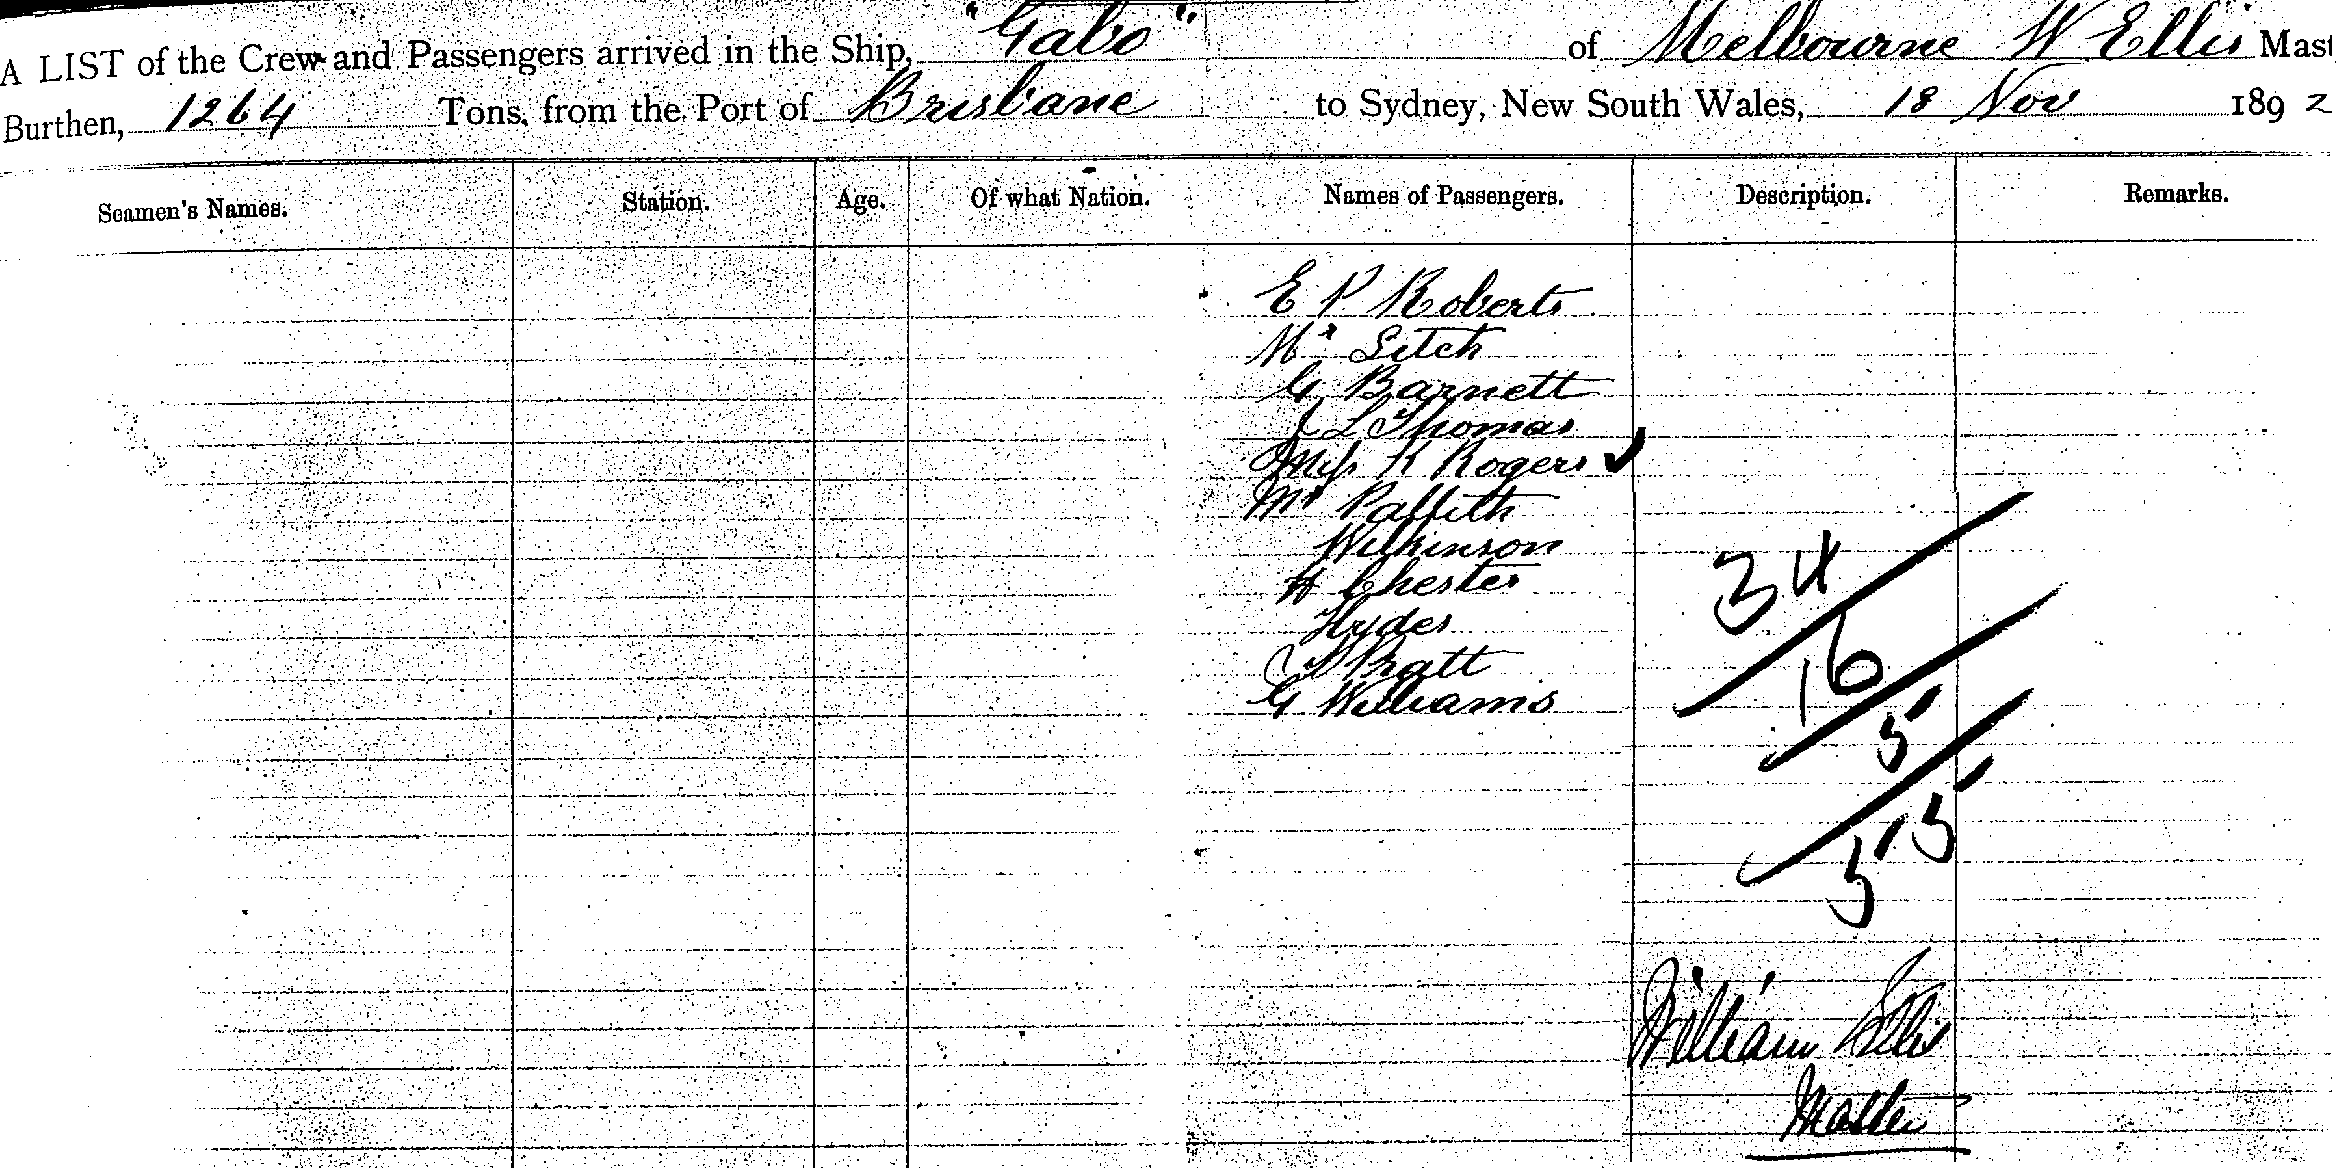 A LIST of the Crew and Passengers arrived in the Ship, "Gabo" of Melbourne W Ellis Mast
Burthen, 1264 Tons, from the Port of Brisbane to Sydney, New South Wales, 18 Nov 1892
Seamen's Names. Station. Age. Of what Nation. Names of Passengers. Description. Remarks.
E P Roberts
Mr Sitch
G Barnett
J L Thomas
Miss K Rogers ✓
Mr
Wilkinson
H Chester
Hydes
Pratt
G Williams
34
16
5
55
William Ellis
Master